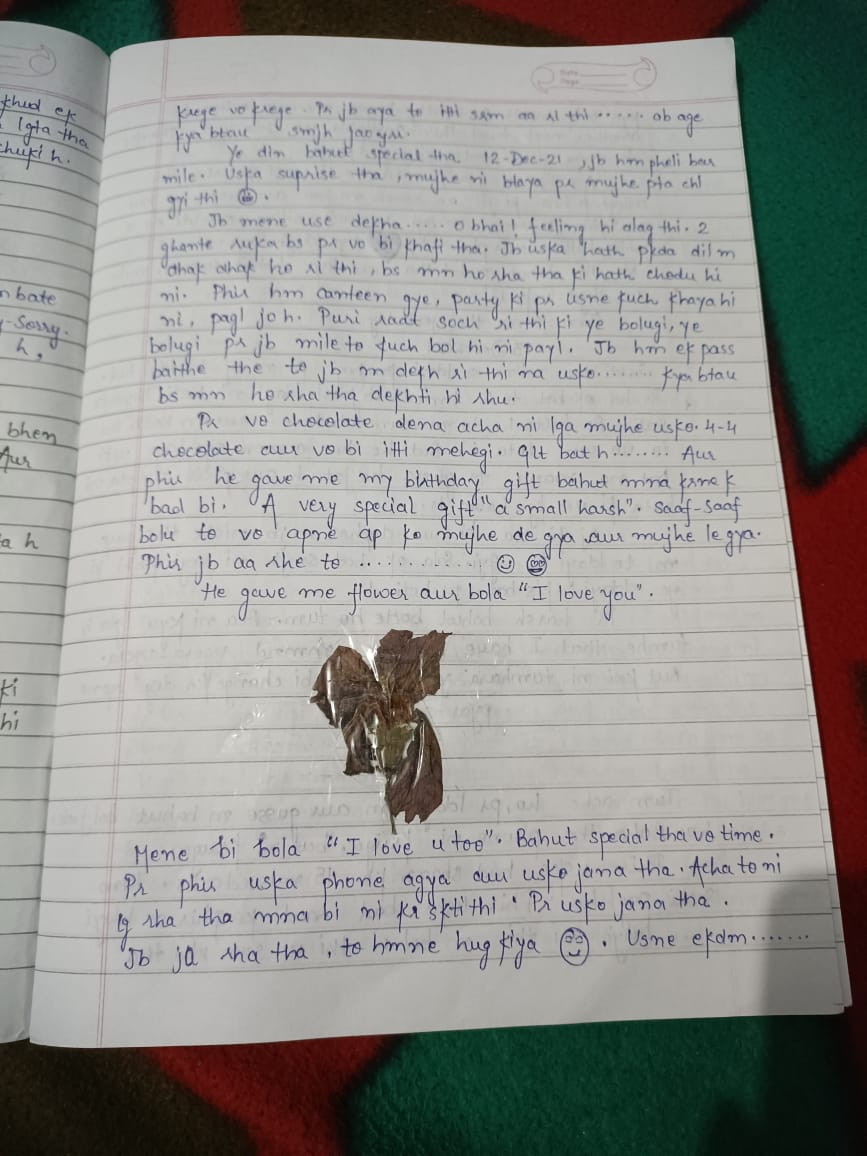 khud ek
lgta tha
chuki h.
n bate
-Sorry.
h,
bhen
Aur
a h
ki
hi
krege vo krege. Pr jb aya to itti srm aa ri thi...... ab age
kya btau smjh jaogi.
Ye din bahut special tha 12-Dec-21, jb hm pheli bar
mile. Uska suprise tha, mujhe ni btaya pr mujhe pta chl
gyi thi 😄.
Jb mene use dekha..... o bhai! feeling hi alag thi. 2
ghante ruka bs pr vo bi khafi tha. Jb uska hath pkda dil m
dhak dhak ho ri thi, bs mn ho rha tha ki hath chodu hi
ni. Phir hm canteen gye, party ki pr usne kuch khaya hi
ni, pagl jo h. Puri raat soch ri thi ki ye bolugi, ye
bolugi pr jb mile to kuch bol hi ni payi. Jb hm ek pass
baithe the to jb m dekh ri thi na usko........ kya btau
bs mn ho rha tha dekhti hi rhu.
Pr vo chocolate dena acha ni lga mujhe usko. 4-4
chocolate aur vo bi itti mehegi. glt bat h........ Aur
phir he gave me my birthday gift bahut mna krne k
baad bi. A very special gift "a small harsh". Saaf-Saaf
bolu to vo apne ap ko mujhe de gya aur mujhe le gya.
Phir jb aa rhe to ............. 🙂 😄
He gave me flower aur bola "I love you".
Mene bi bola "I love u too". Bahut special tha vo time.
Pr phir uska phone agya aur usko jana tha. Acha to ni
lg rha tha mna bi ni kr skti thi. Pr usko jana tha.
Jb ja rha tha, to hmne hug kiya 😊. Usne ekdm.......